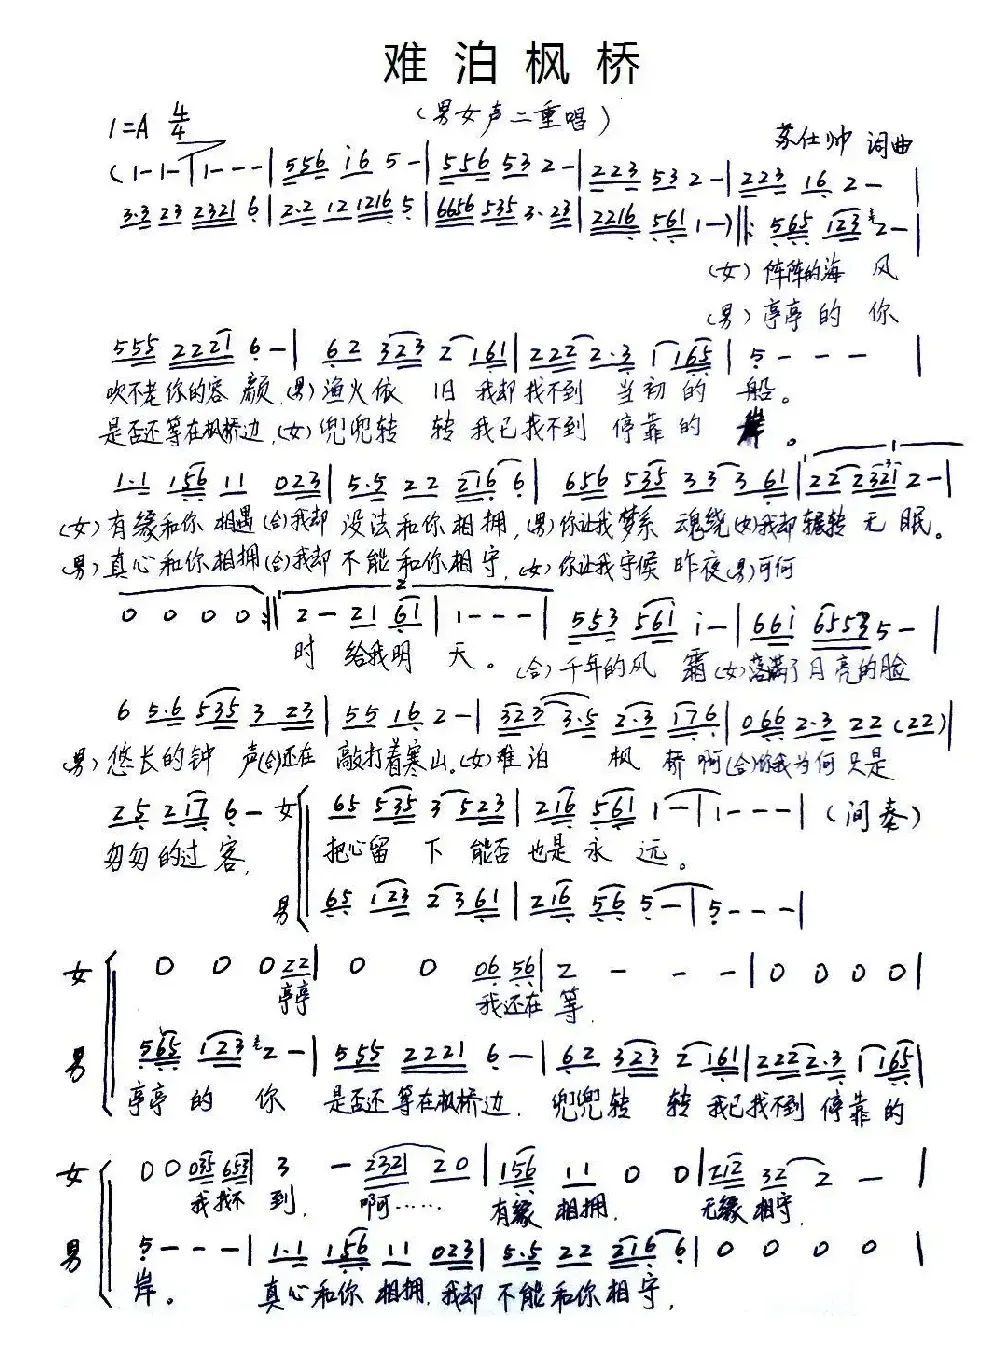 难泊枫桥
(男女声二重唱)
1=A 4/4
苏仕帅 词曲
(1-1-|1---|556 i6 5-|556 53 2-|223 53 2-|223 16 2-|
3·3 23 2321 6|2·2 12 1216 5|6656 535 3·23|2216 561 1-)‖: 565 123 2-|
(女)阵阵的海 风
(男)亭亭的 你
555 2221 6-|62 323 2 161|222 2·3 1 165|5---|
吹不老你的容 颜,(男)渔火依 旧 我却找不到 当初的 船。
是否还等在枫桥边,(女)兜兜转 转 我已找不到 停靠的 岸。
1·1 156 11 023|5·5 22 216 6|656 535 33 3 61|22 2 2321 2-|
(女)有缘和你 相遇(合)我却 没法和你相拥,(男)你让我梦系 魂绕(女)我却辗转 无 眠。
(男)真心和你相拥(合)我却 不能和你相守,(女)你让我守候 昨夜(男)可何
0 0 0 0 :‖ 2- 21 61|1---|553 561 i-|66i 6553 5-|
时 给我明 天。(合)千年的风 霜(女)落满了月亮的脸
6 5·6 535 3 23|55 16 2-|323 3·5 2·3 176|066 2·3 22 (22)|
(男)悠长的钟 声(合)还在 敲打着寒山。(女)难泊 枫 桥啊(合)你我为何只是
25 217 6- 女 65 535 3 523|216 561 1-|1---|(间奏)
匆匆的过客, 把心留 下 能否 也是永 远。
男 65 123 2 361|216 56 5-|5---|
女 0 0 0 22|0 0 06 56|2 - - -|0 0 0 0|
亭亭 我还在 等.
男 565 123 2-|555 2221 6-|62 323 2 161|222 2·3 1 165|
亭亭的 你 是否还等在枫桥边. 兜兜转 转 我已找不到 停靠的
女 0 0 035 653|3 - 2321 20|156 11 0 0|212 32 2 -|
我找不 到. 啊…… 有缘 相拥. 无缘 相守.
男 5---|1·1 156 11 023|5·5 22 216 6|0 0 0 0|
岸。 真心和你 相拥.我却 不能和你相守.